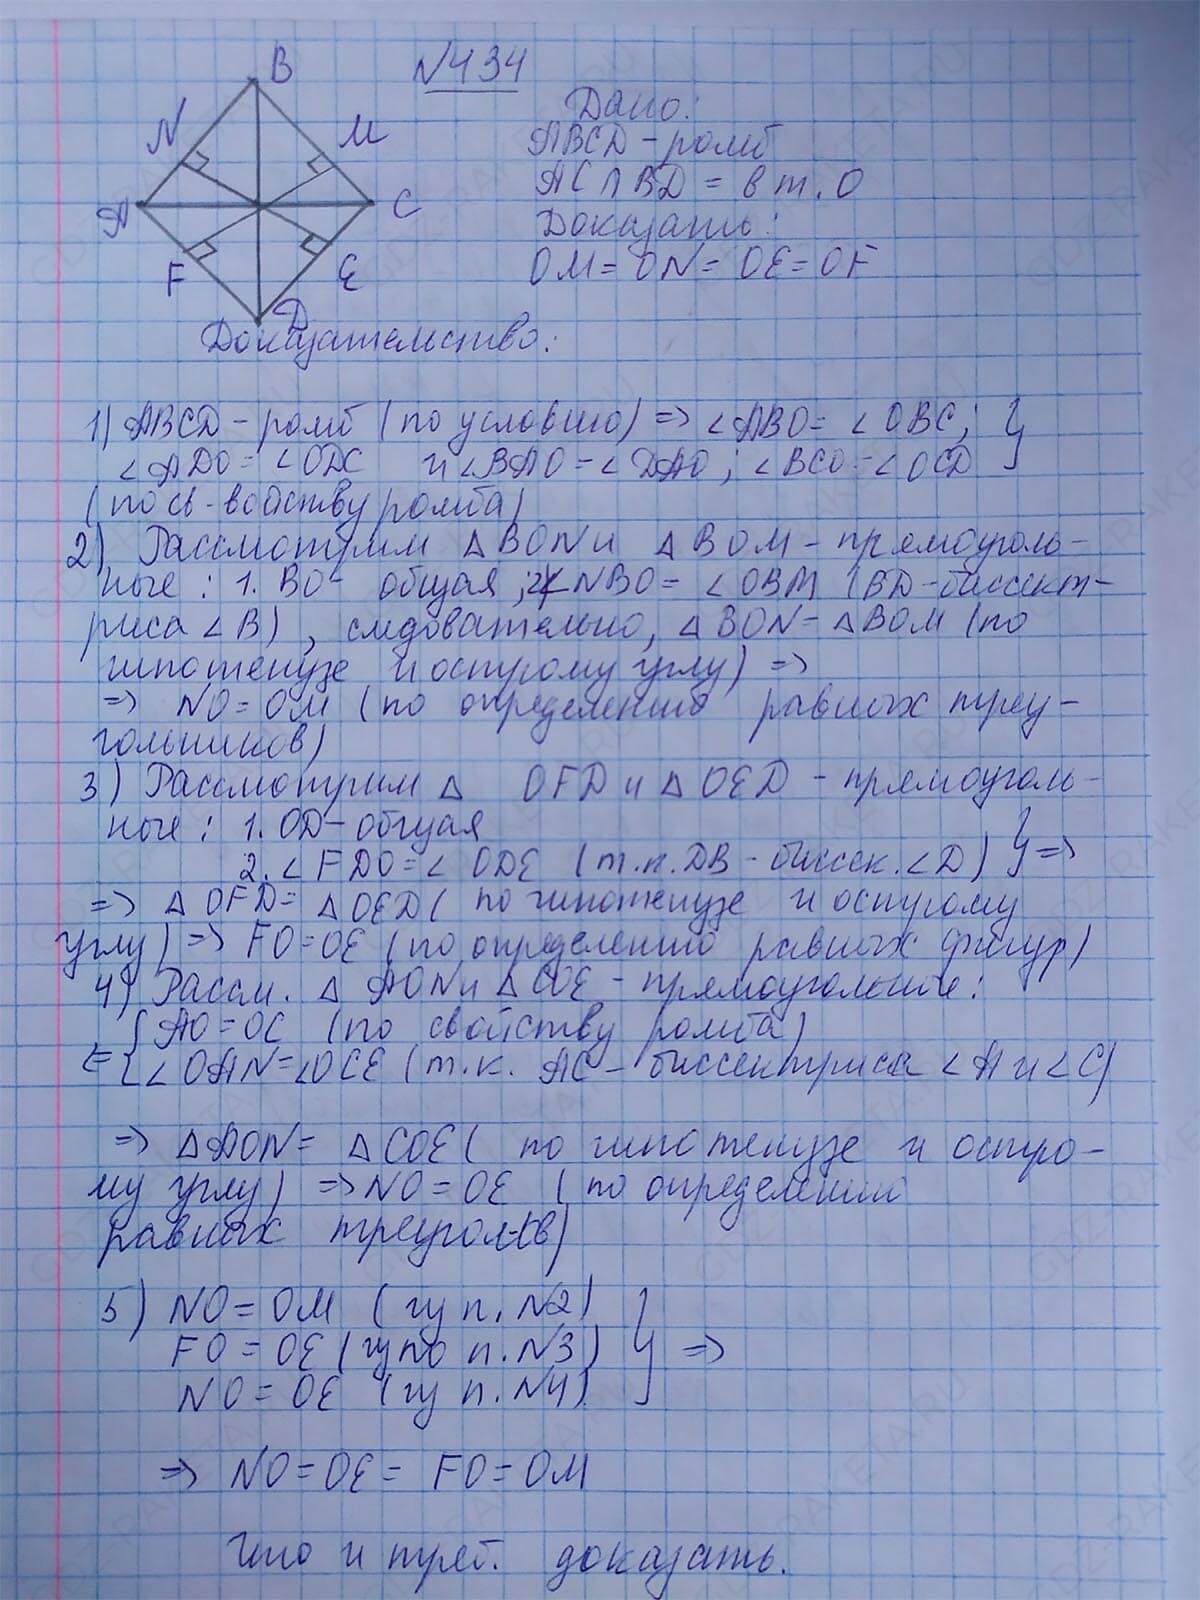 №434
B
N
M
A
C
F
E
D
Дано:
ABCD - ромб
AC ∩ BD = в т. O
Доказать:
OM = ON = OE = OF
Доказательство:
1) ABCD - ромб (по условию) => ∠ABO = ∠OBC; }
∠ADO = ∠ODC и ∠BAO = ∠DAO; ∠BCO = ∠OCD
(по св-войству ромба)
2) Рассмотрим △BON и △BOM - прямоуголь-
ные: 1. BO - общая; 2. ∠NBO = ∠OBM (BD - биссект-
риса ∠B), следовательно, △BON = △BOM (по
гипотенузе и острому углу) =>
=> NO = OM (по определению равных треу-
гольников)
3) Рассмотрим △ OFD и △OED - прямоуголь-
ные: 1. OD - общая
2. ∠FDO = ∠ODE (т.к. DB - биссек. ∠D) } =>
=> △OFD = △OED (по гипотенузе и острому
углу) => FO = OE (по определению равных фигур)
4) Рассм. △AON и △COE - прямоугольные:
{ AO = OC (по свойству ромба)
∠OAN = ∠OCE (т.к. AC - биссектриса ∠A и ∠C)
=> △AON = △COE (по гипотенузе и остро-
му углу) => NO = OE (по определению
равных треугол-ов)
5) NO = OM (из п. №2) }
FO = OE (из по п. №3) } =>
NO = OE (из п. №4)
=> NO = OE = FO = OM
Что и треб. доказать.